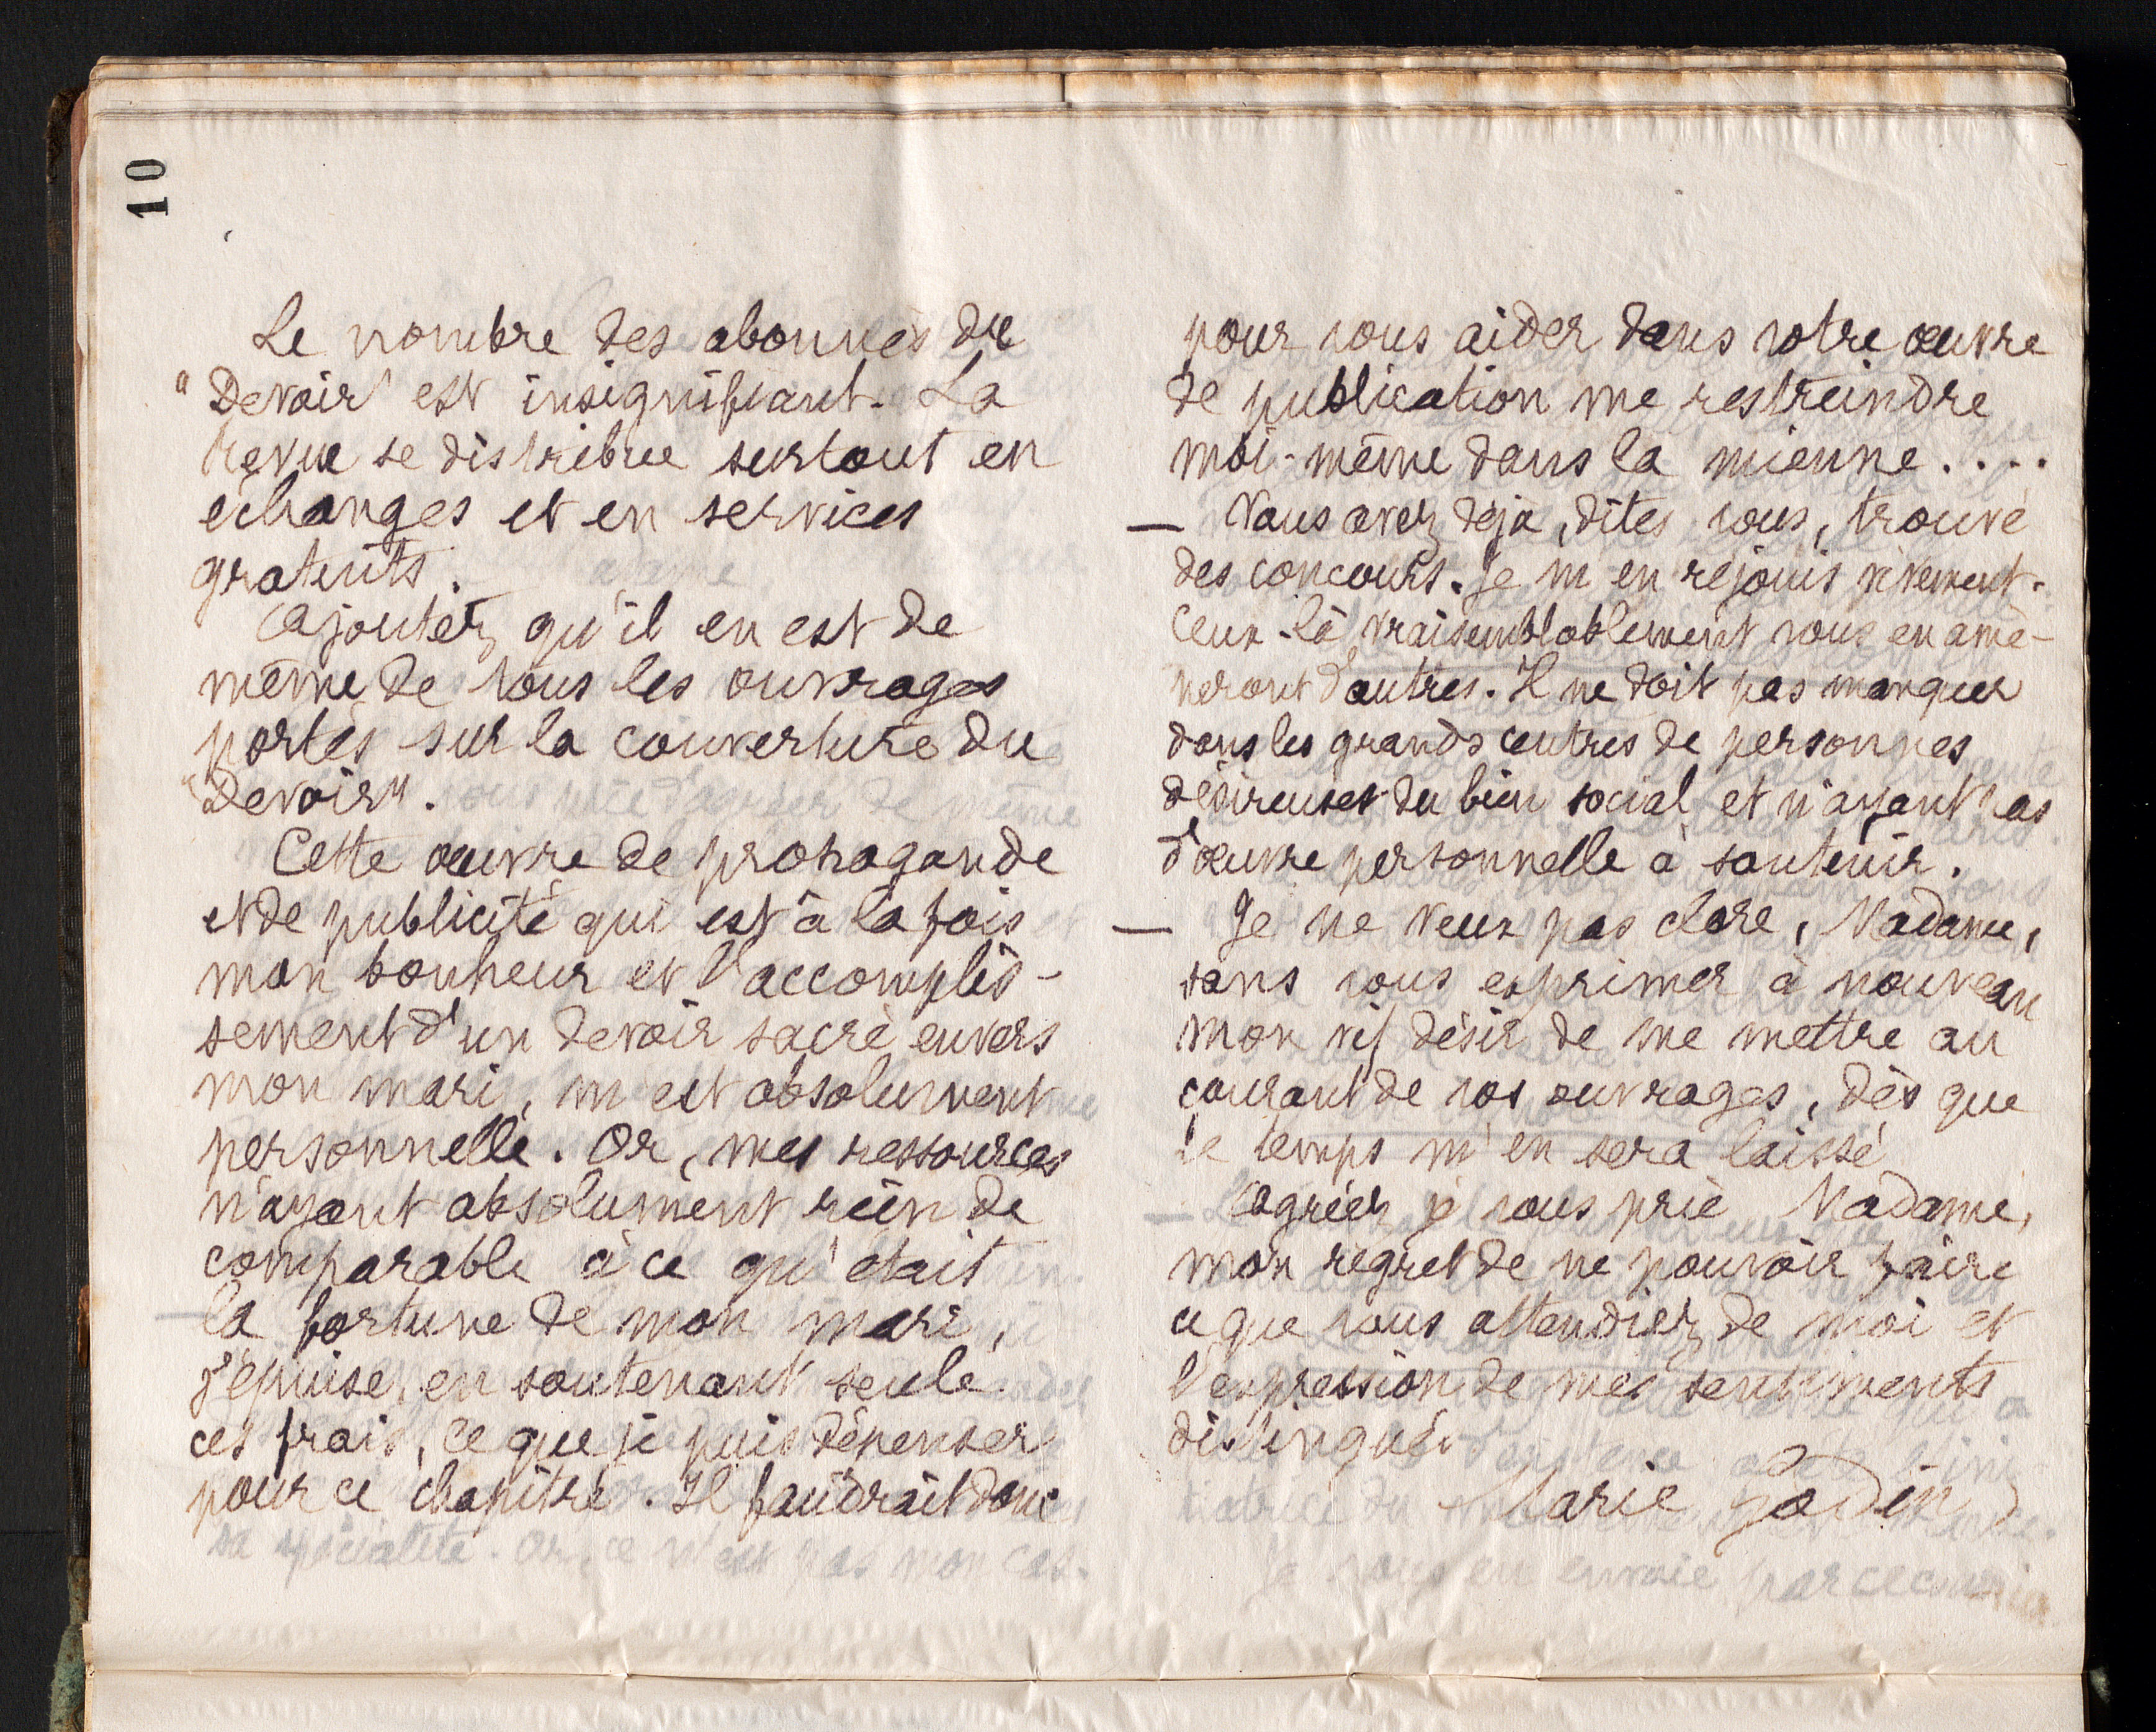 10
Le nombre des abonnés du
"Devoir" est insignifiant. La
revue se distribue surtout en
échanges et en services
gratuits.
Ajoutez qu'il en est de
même de tous les ouvrages
portés sur la couverture du
"Devoir".
Cette œuvre de propagande
et de publicité qui est à la fois
mon bonheur et l'accomplis-
sement d'un devoir sacré envers
mon mari, m'est absolument
personnelle. Or, mes ressources
n'ayant absolument rien de
comparable à ce qu'était
la fortune de mon mari,
j'épuise, en soutenant seule
ces frais, ce que je puis dépenser
pour ce chapitre. Il faudrait donc
pour vous aider dans votre œuvre
de publication me restreindre
moi-même dans la mienne....
— Vous avez déjà, dites vous, trouvé
des concours. Je m'en réjouis vivement.
Ceux-là vraisemblablement vous en amè-
neront d'autres. Il ne doit pas manquer
dans les grands centres de personnes
désireuses du bien social et n'ayant pas
d'œuvre personnelle à soutenir.
— Je ne veux pas clore, Madame,
sans vous exprimer à nouveau
mon vif désir de me mettre au
courant de vos ouvrages, dès que
le temps m'en sera laissé
Agréez je vous prie Madame,
mon regret de ne pouvoir faire
ce que vous attendiez de moi et
l'expression de mes sentiments
distingués
Marie Godin